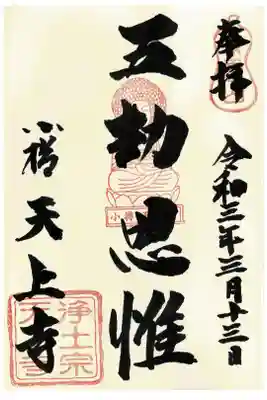 奉拝
令和三年三月十三日
五劫思惟
小樽 天上寺
浄土宗
天上寺